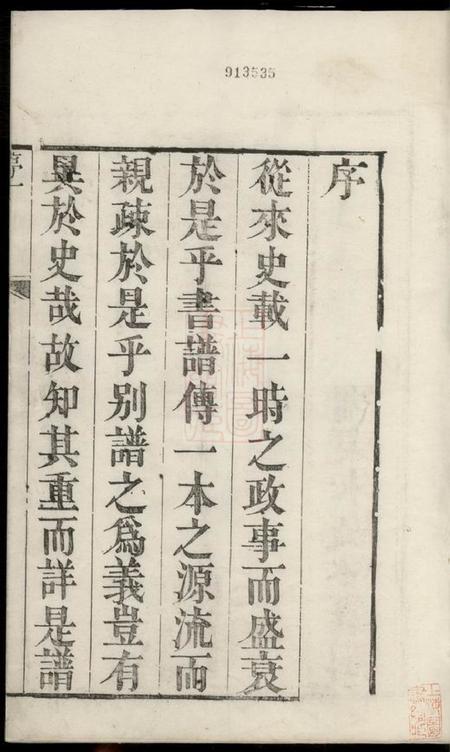 913535
序
從來史載一時之政事而盛衰
於是乎書譜傳一本之源流而
親疎於是乎别譜之爲義豈有
異於史哉故知其重而詳是譜